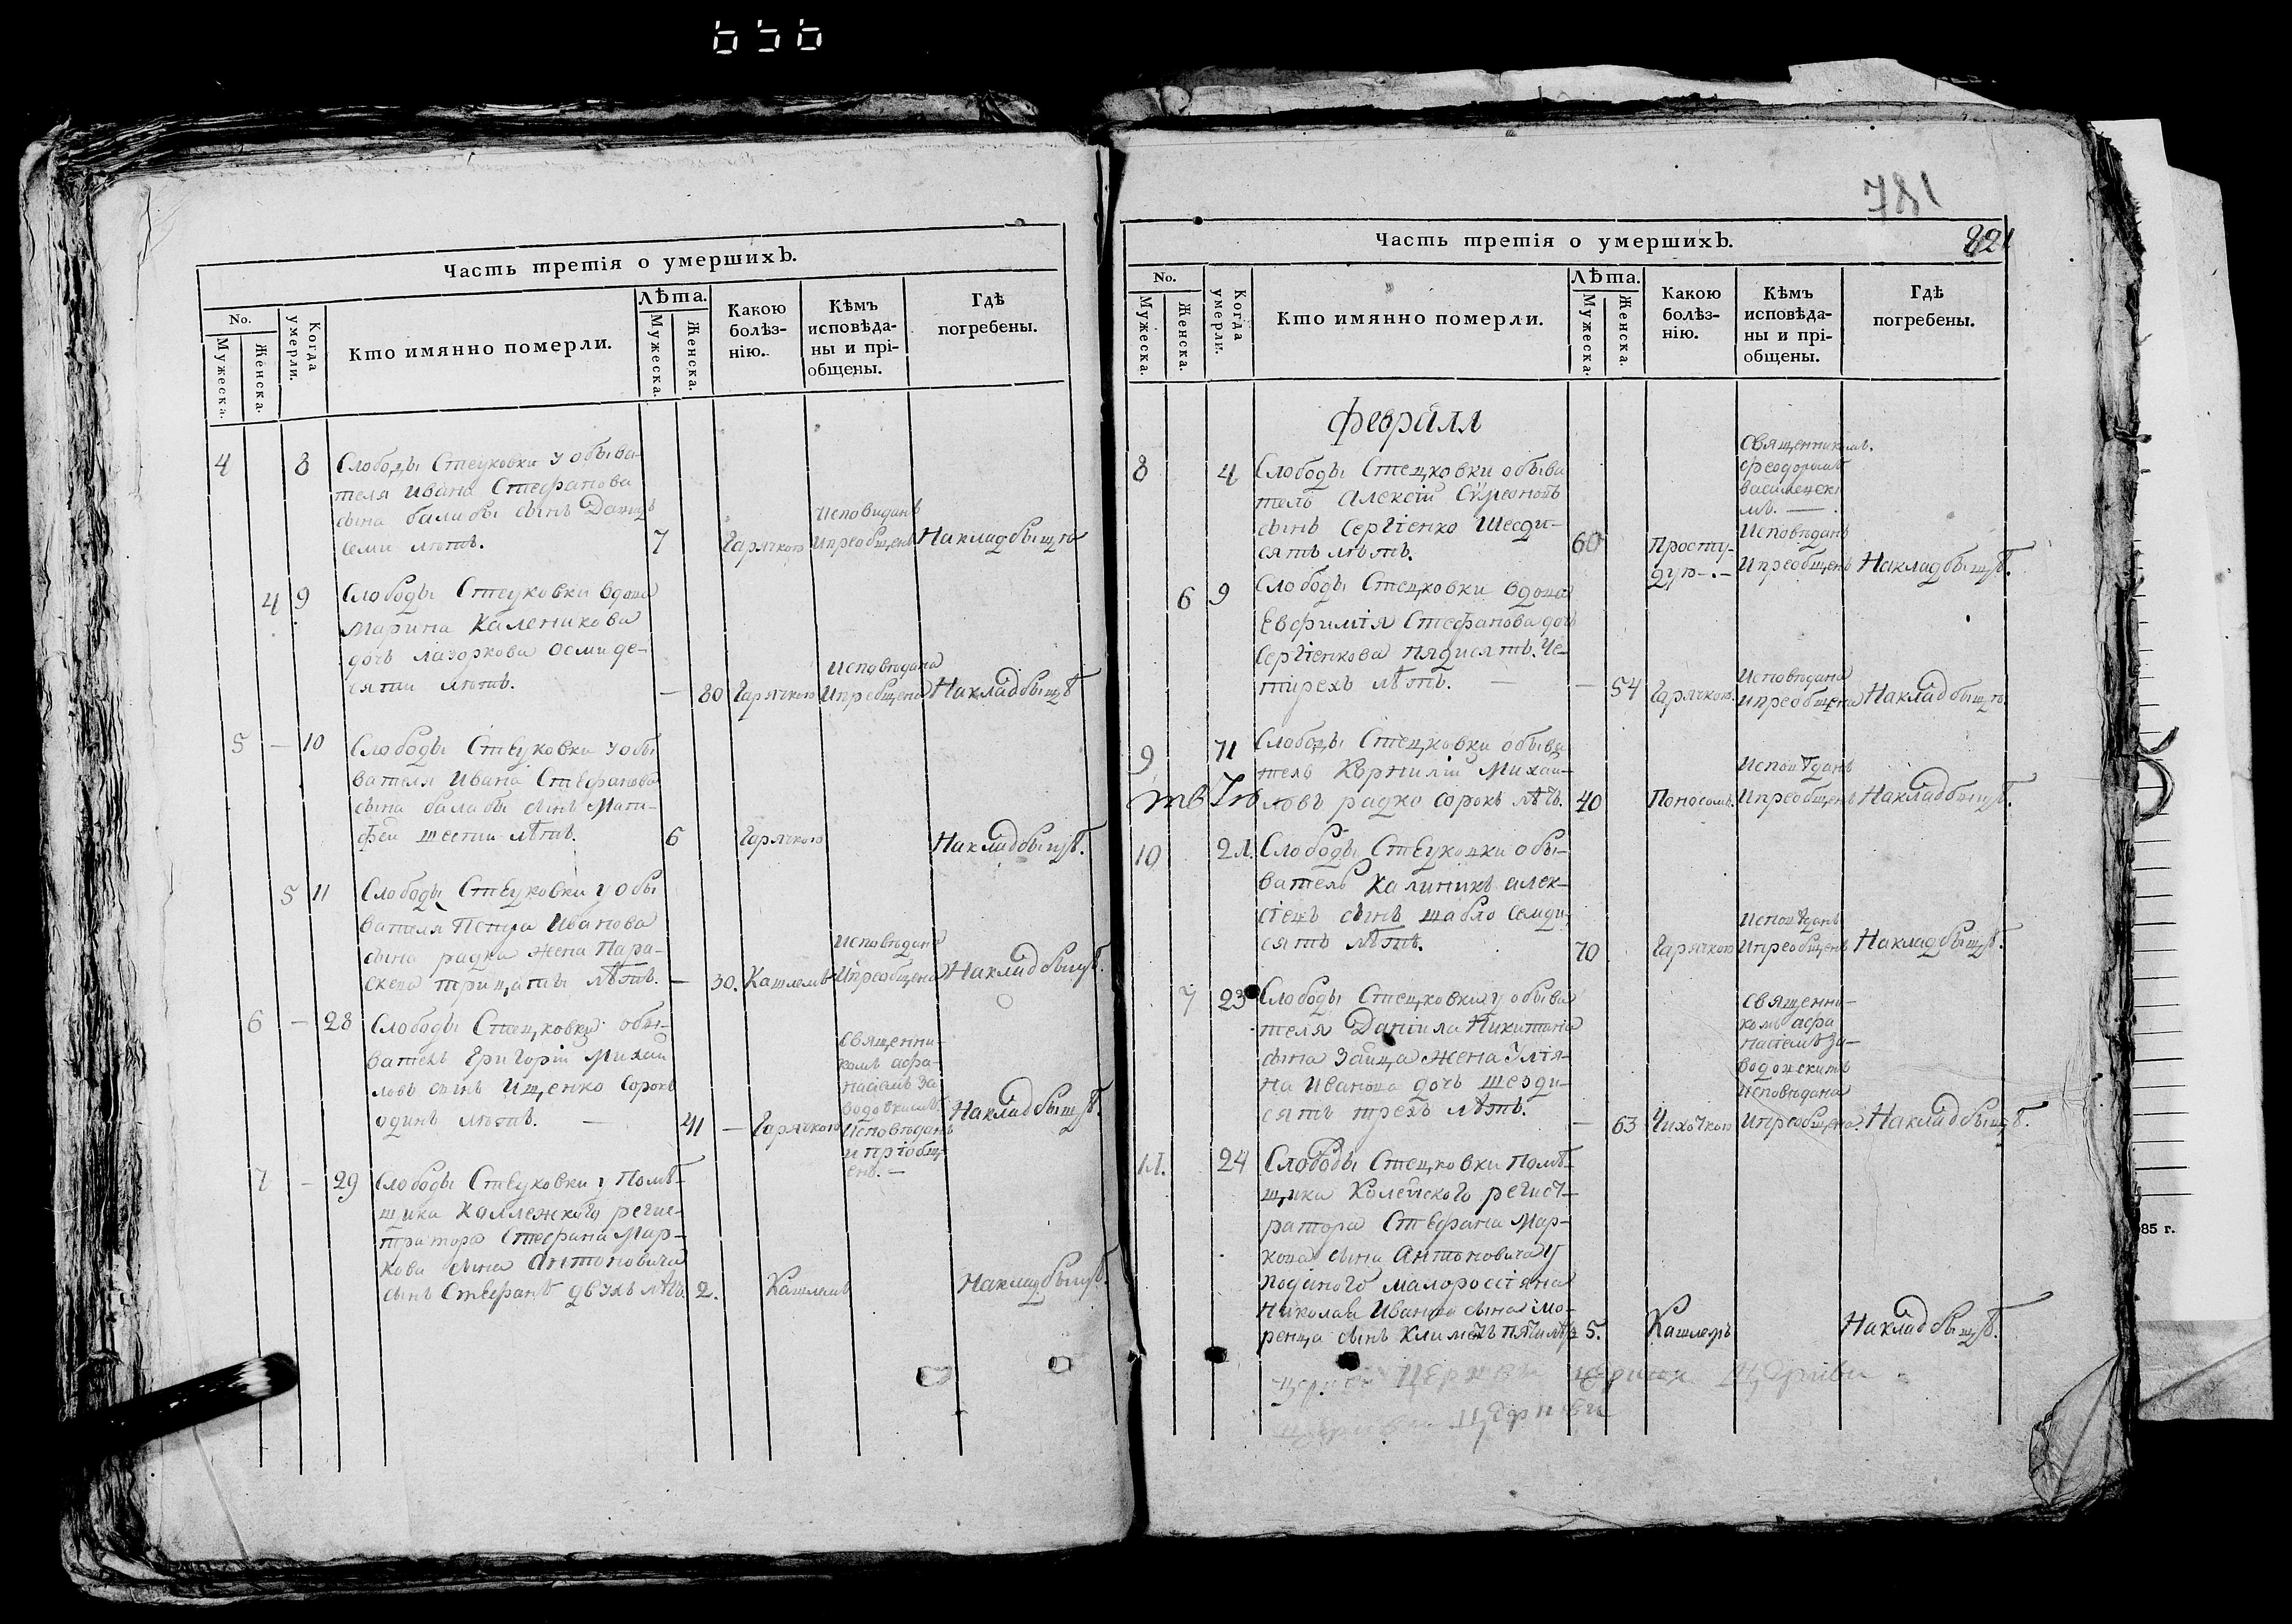 656
Часть третія о умершихъ.
No.
Мужеска.
Женска.
Когда умерли.
Кто имянно померли.
Лѣта.
Мужеска.
Женска.
Какою болѣз-
нію.
Кѣмъ
исповѣда-
ны и прі-
общены.
Гдѣ
погребены.
4 8 Слободы Стецковки у обыва-
теля Ивана Стефанова
сына балабы сынъ
семи лѣтъ. 7 Гарячкою
Исповѣданъ
Ипреобщенъ Накладбыщѣ
4 9 Слободы Стецковки вдова
Марина Каленикова
дочь лазоркова осмиде-
сяти лѣтъ. — 80 Гарячкою
Исповѣдана
Ипреобщена Накладбыщѣ
5 — 10 Слободы Стецковки у обы
вателя Ивана Стефанова
сына балабы сынъ Мати-
фей шести лѣтъ. 6 Гарячкою Накладбыщѣ.
5 11 Слободы Стецковки у обы
вателя Петра Иванова
сына радка жена Пара-
скева трицать лѣтъ. — 30. Кашлемъ
Исповѣдана
Ипреобщена Накладбыщѣ.
6 — 28 Слободы Стецковки обы-
ватель Григорій Михаи
ловъ сынъ Ищенко сорокъ
одинъ лѣтъ. — 41 — Гарячкою
священни-
комъ афа-
насіемъ За
водовскимъ
Исповѣданъ
и пріобщ
енъ. —
Накладбыщѣ.
7 — 29 Слободы Стецковки у Помѣ-
щика Коллежскаго регис-
тратора Стефана Мар-
кова сына Антоновича
сынъ Стефанъ двухъ лѣтъ. 2. Кашлемъ Накладбыщѣ.
781
821
Часть третія о умершихъ.
No.
Мужеска.
Женска.
Когда умерли.
Кто имянно померли.
Лѣта.
Мужеска.
Женска.
Какою
болѣз-
нію.
Кѣмъ
исповѣда-
ны и прі-
общены.
Гдѣ
погребены.
Февралл
8 4 Слободы Стецковки обыва
тель Алексій Сѵмеоновъ
сынъ Сергіенко Шесди-
сятъ лѣтъ. 60 Просту-
дую-.-
Священникомъ
Феодоромъ
василевски
мъ. —
Исповѣданъ
Ипреобщенъ Накладбыщѣ.
6 9 Слободы Стецковки вдова
Евфимія Стефанова дочь
Сергіенкова пядисятъ. Че-
тирехъ лѣтъ. — — 54 Гарячкою.
Исповѣдана
ипреобщена Накладбыщѣ.
9 11 Слободы Стецковки обыва
тель Корнилій Михаи-
ловъ радко сорокъ лѣтъ. 40 Поносомъ.
Исповѣданъ
Ипреобщенъ Накладбыщѣ.
10 21. Слободы Стецковки обы-
ватель Калиникъ алек-
сіевъ сынъ шабло семди-
сятъ лѣтъ. 70 Гарячкою
Исповѣданъ
Ипреобщенъ Накладбыщѣ.
7 23 Слободы Стецковки у обыва
теля Даніила Никитина
сына Зайца жена Улія-
на Иванова дочь шезди-
сятъ трехъ лѣтъ. — 63 Чихоткою
священни-
комъ афа
насіемъ За-
водовскимъ
Исповѣдана
Ипреобщена. Накладбыщѣ.
11. 24 Слободы Стецковки Помѣ-
щика Колейского регист-
ратора Стефана Мар-
кова сына Антоновича у
подданого малоросіяна
Николая Иванова сына Мо-
ренца сынъ Климетъ пяти лѣтъ 5. Кашлемъ Накладбыщѣ.
Церкви
Церкви
85 г.